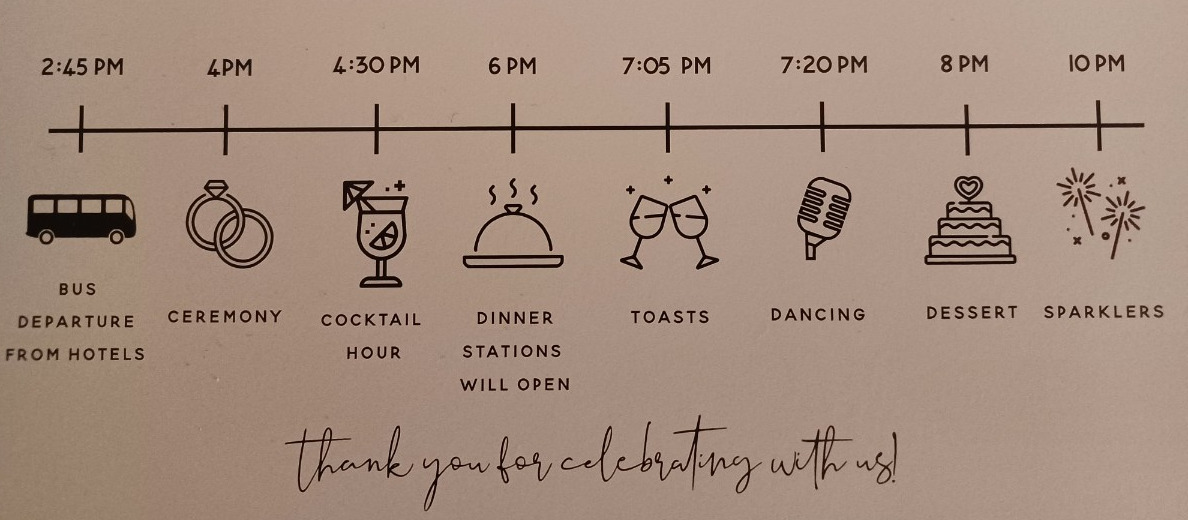 2:45 PM 4PM 4:30 PM 6 PM 7:05 PM 7:20 PM 8 PM 10 PM
BUS
DEPARTURE
FROM HOTELS
CEREMONY
COCKTAIL
HOUR
DINNER
STATIONS
WILL OPEN
TOASTS
DANCING
DESSERT
SPARKLERS
thank you for celebrating with us!